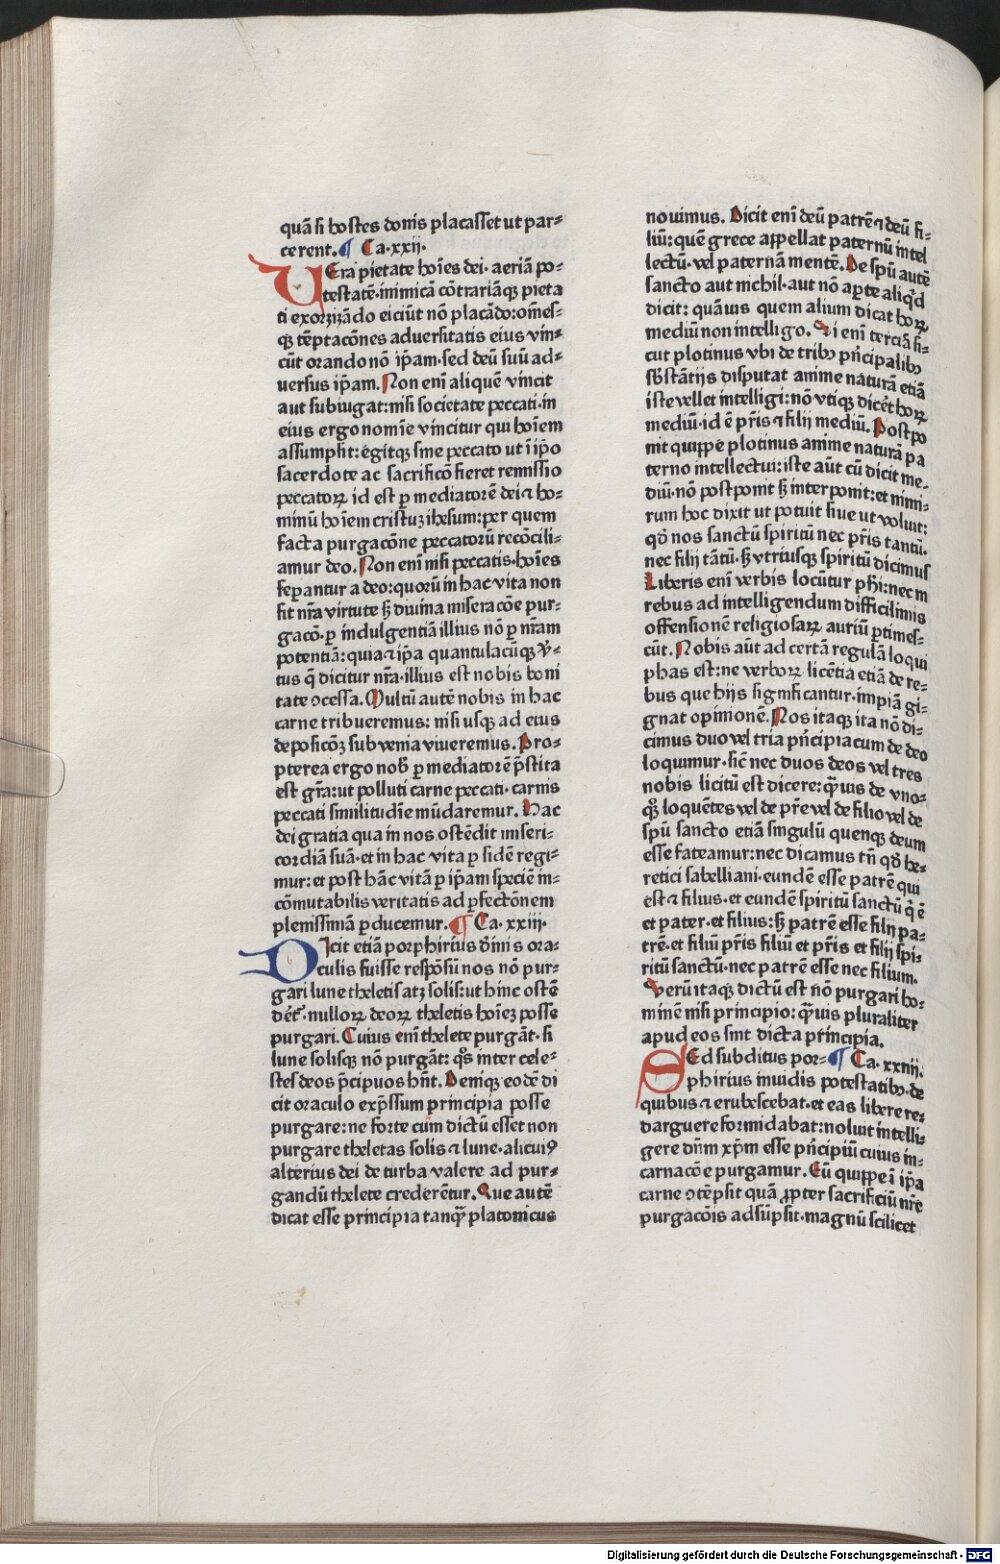 quā si hostes donis placasset ut par⸗
cerent. ¶ Ca.xxij.
VEra pietate hoīes dei· aeriā po⸗
testatē·inimicā cōtrariāq; pieta
ti exorzizādo eiciūt nō placādo:omēs⸗
q; tēptacōnes aduersitatis eius vin⸗
cūt orando nō ip̄am·sed deū suū ad⸗
uersus ip̄am. Non enī aliquē vincit
aut subiugat:nisi societate peccati·in
eius ergo nomīe vincitur qui hoīem
assumpsit: egitq; sine peccato ut ī ip̄o
sacerdote ac sacrificō fieret remissio
peccatoꝝ id est ꝑ mediatorē dei ⁊ ho⸗
minū hoīem cristuꝫ ihesum:per quem
facta purgacōne peccatorū recōcili⸗
amur deo. Non enī nisi peccatis·hoīes
seꝑantur a deo:quorū in hac vita non
fit nr̄a virtute sꝫ diuina miseracōe pur⸗
gacō·ꝑ indulgentiā illius nō ꝑ nr̄am
potentiā:quia ⁊ ip̄a quantulacūq; v̄⸗
tus q̄ dicitur nr̄a·illius est nobis boni
tate ꝯcessa. Multū autē nobis in hac
carne tribueremus: nisi usq; ad eius
deposicōꝫ sub venia viueremus. Pro⸗
pterea ergo nob̄ ꝑ mediatorē p̄stita
est gr̄a:ut polluti carne peccati· carnis
peccati similitudīe mūdaremur. Hac
dei gratia qua in nos ostēdit miseri⸗
cordiā suā·et in hac vita ꝑ fidē regi⸗
mur:et post hāc vitā ꝑ ip̄am speciē in⸗
cōmutabilis veritatis ad ꝑfectōnem
plenissimā ꝑducemur. ¶ Ca.xxiij.
DIcit etiā porphirius d̄inis ora⸗
culis fuisse respōsū nos nō pur⸗
gari lune theletis atꝫ solis:ut hinc ostē
d̄et̄·nulloꝝ deoꝝ theletis hoīeꝫ posse
purgari. Cuius enī thelete purgāt· si
lune solisq; nō purgāt: q̄s inter cele⸗
stes deos p̄cipuos hn̄t. Deniq; eodē di
cit oraculo exp̄ssum principia posse
purgare:ne forte cum dictū esset non
purgare theletas solis ⁊ lune·alicuiꝰ
alterius dei de turba valere ad pur⸗
gandū thelete crederētur. Que autē
dicat esse principia tanq̄ platonicus
nouimus. Dicit enī deū patrē ⁊ deū fi⸗
liū: quē grece appellat paternū intel
lectū· vel paternā mentē. De spū autē
sancto aut nichil·aut nō aꝑte aliq̇d
dicit: quāuis quem alium dicat hoꝝ
mediū non intelligo. Si enī terciā si⸗
cut plotinus vbi de tribꝰ pn̄cipalibꝰ
sb̄stātijs disputat anime naturā etiā
iste vellet intelligi: nō vtiq; dicēt hoꝝ
mediū·id ē pr̄is ⁊ filij mediū. Postpo
nit quippe plotinus anime naturā pa
terno intellectui: iste aūt cū dicit me⸗
diū·nō postponit sꝫ interponit: et nimi⸗
rum hoc dixit ut potuit siue ut voluit:
qd̄ nos sanctū spiritū nec pr̄is tantū·
nec filij tātū·sꝫ vtriusq; spiritū dicimus
Liberis enī verbis locūtur ph̄i: nec in
rebus ad intelligendum difficilimis
offensionē religiosaꝝ auriū ꝑtimes⸗
cūt. Nobis aūt ad certā regulā loqui
phas est: ne verboꝝ licētia etiā de re⸗
bus que hijs significantur·impiā gi⸗
gnat opinionē. Nos itaq; ita nō di⸗
cimus duo vel tria pn̄cipia cum de deo
loquimur·sic̄ nec duos deos vel tres
nobis licitū est dicere: q̄uis de vno⸗
q̊ꝫ loquētes vel de pr̄e vel de filio vel de
spū sancto etiā singulū quenq; deum
esse fateamur: nec dicamus tn̄ qd̄ he⸗
retici sabelliani·eundē esse patrē qui
est ⁊ filius· et eundē spiritū sanctū q̇ ē
et pater·et filius: sꝫ patrē esse filij pa⸗
trē·et filiū pr̄is filiū et pr̄is et filij spi⸗
ritū sanctū·nec patrē esse nec filium.
Verū itaq; dictū est nō purgari ho⸗
minē nisi principio: q̄uis pluraliter
apud eos sint dicta principia.
SEd subditus por⸗ ¶ Ca.xxiiij.
phirius inuidis potestatibꝰ·de
quibus ⁊ erubescebat·et eas libere re⸗
darguere formidabat: noluit intelli⸗
gere dn̄m xp̄m esse pn̄cipiū cuius in⸗
carnacōe purgamur. Eū quippe ī ip̄a
carne ꝯtēpsit quā ꝓpter sacrificiū nr̄e
purgacōis adsūpsit·magnū scilicet
Digitalisierung gefördert durch die Deutsche Forschungsgemeinschaft - DFG